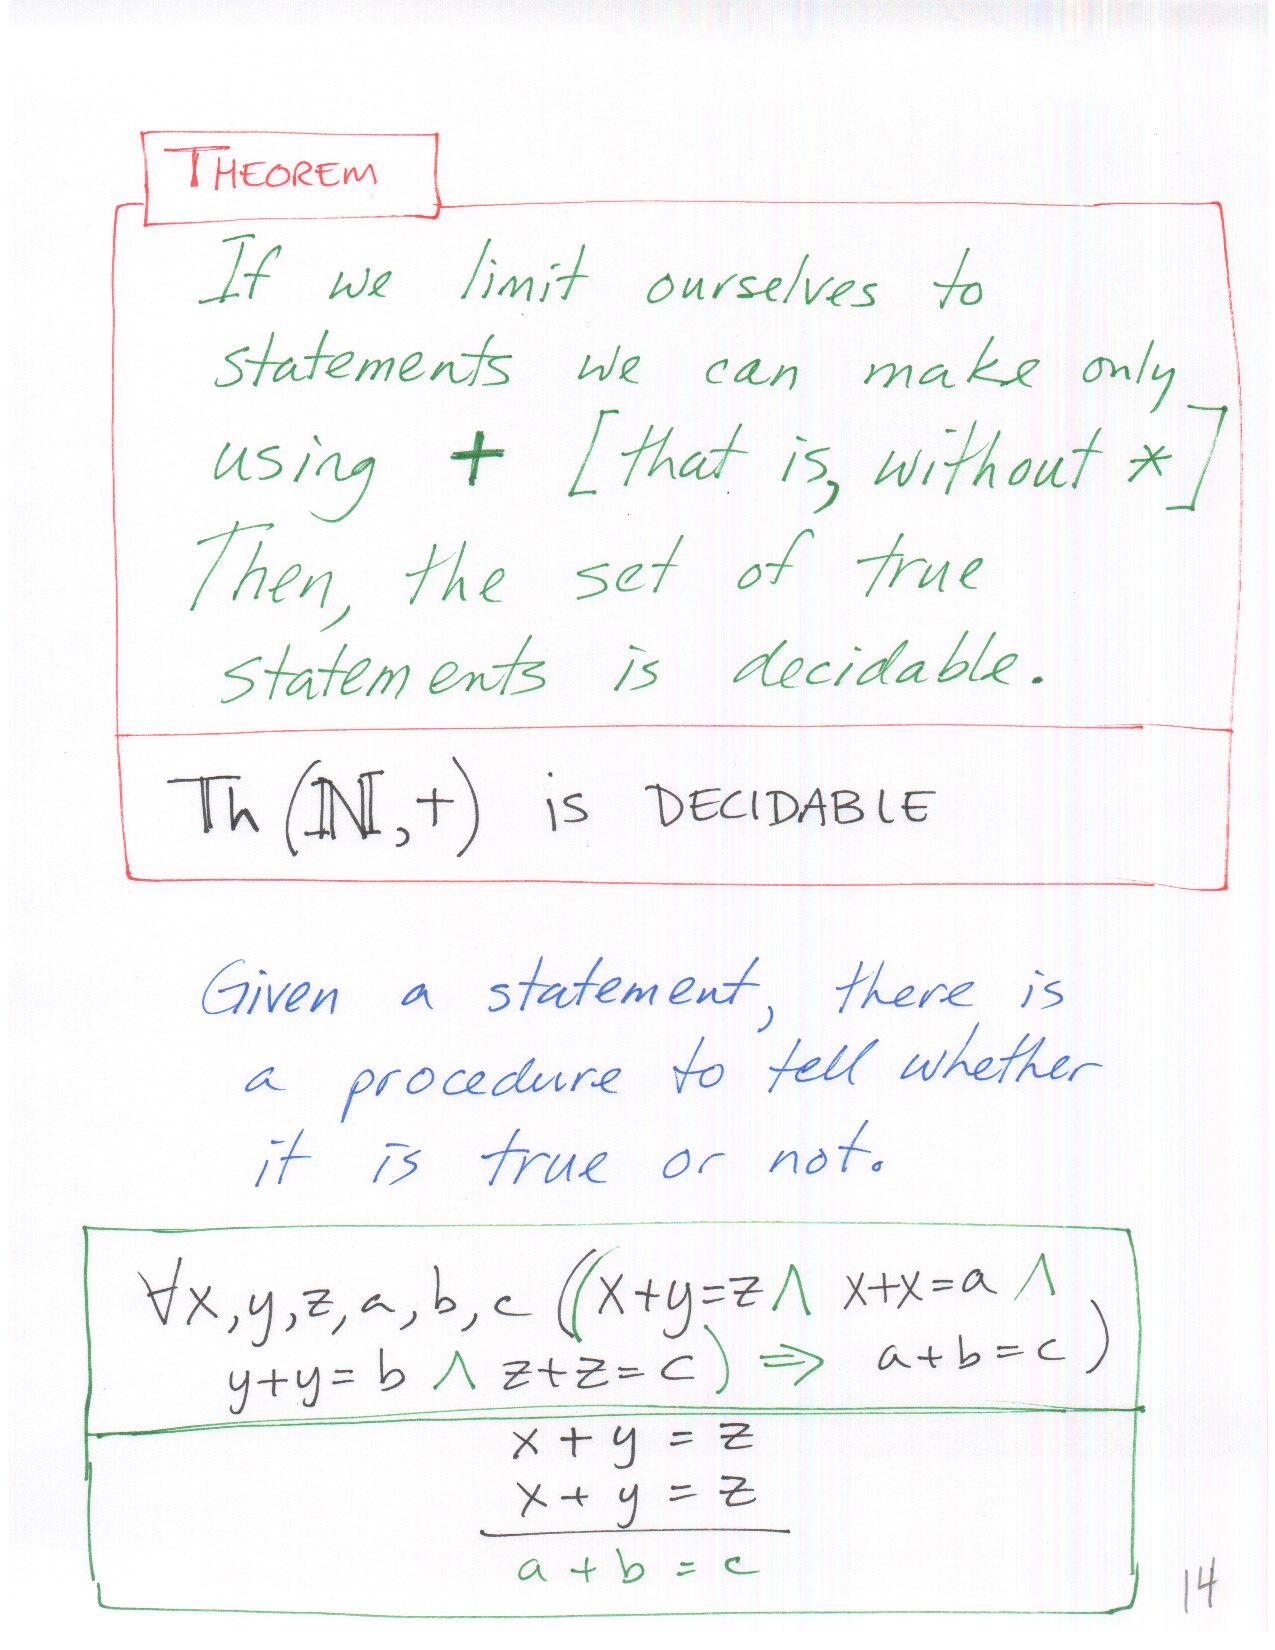 THEOREM
If we limit ourselves to
statements we can make only
using + [that is, without *]
Then, the set of true
statements is decidable.
Th (ℕ,+) is DECIDABLE
Given a statement, there is
a procedure to tell whether
it is true or not.
∀x,y,z,a,b,c ((x+y=z ∧ x+x=a ∧
y+y=b ∧ z+z=c) ⇒ a+b=c)
x + y = z
x + y = z
a + b = c
14